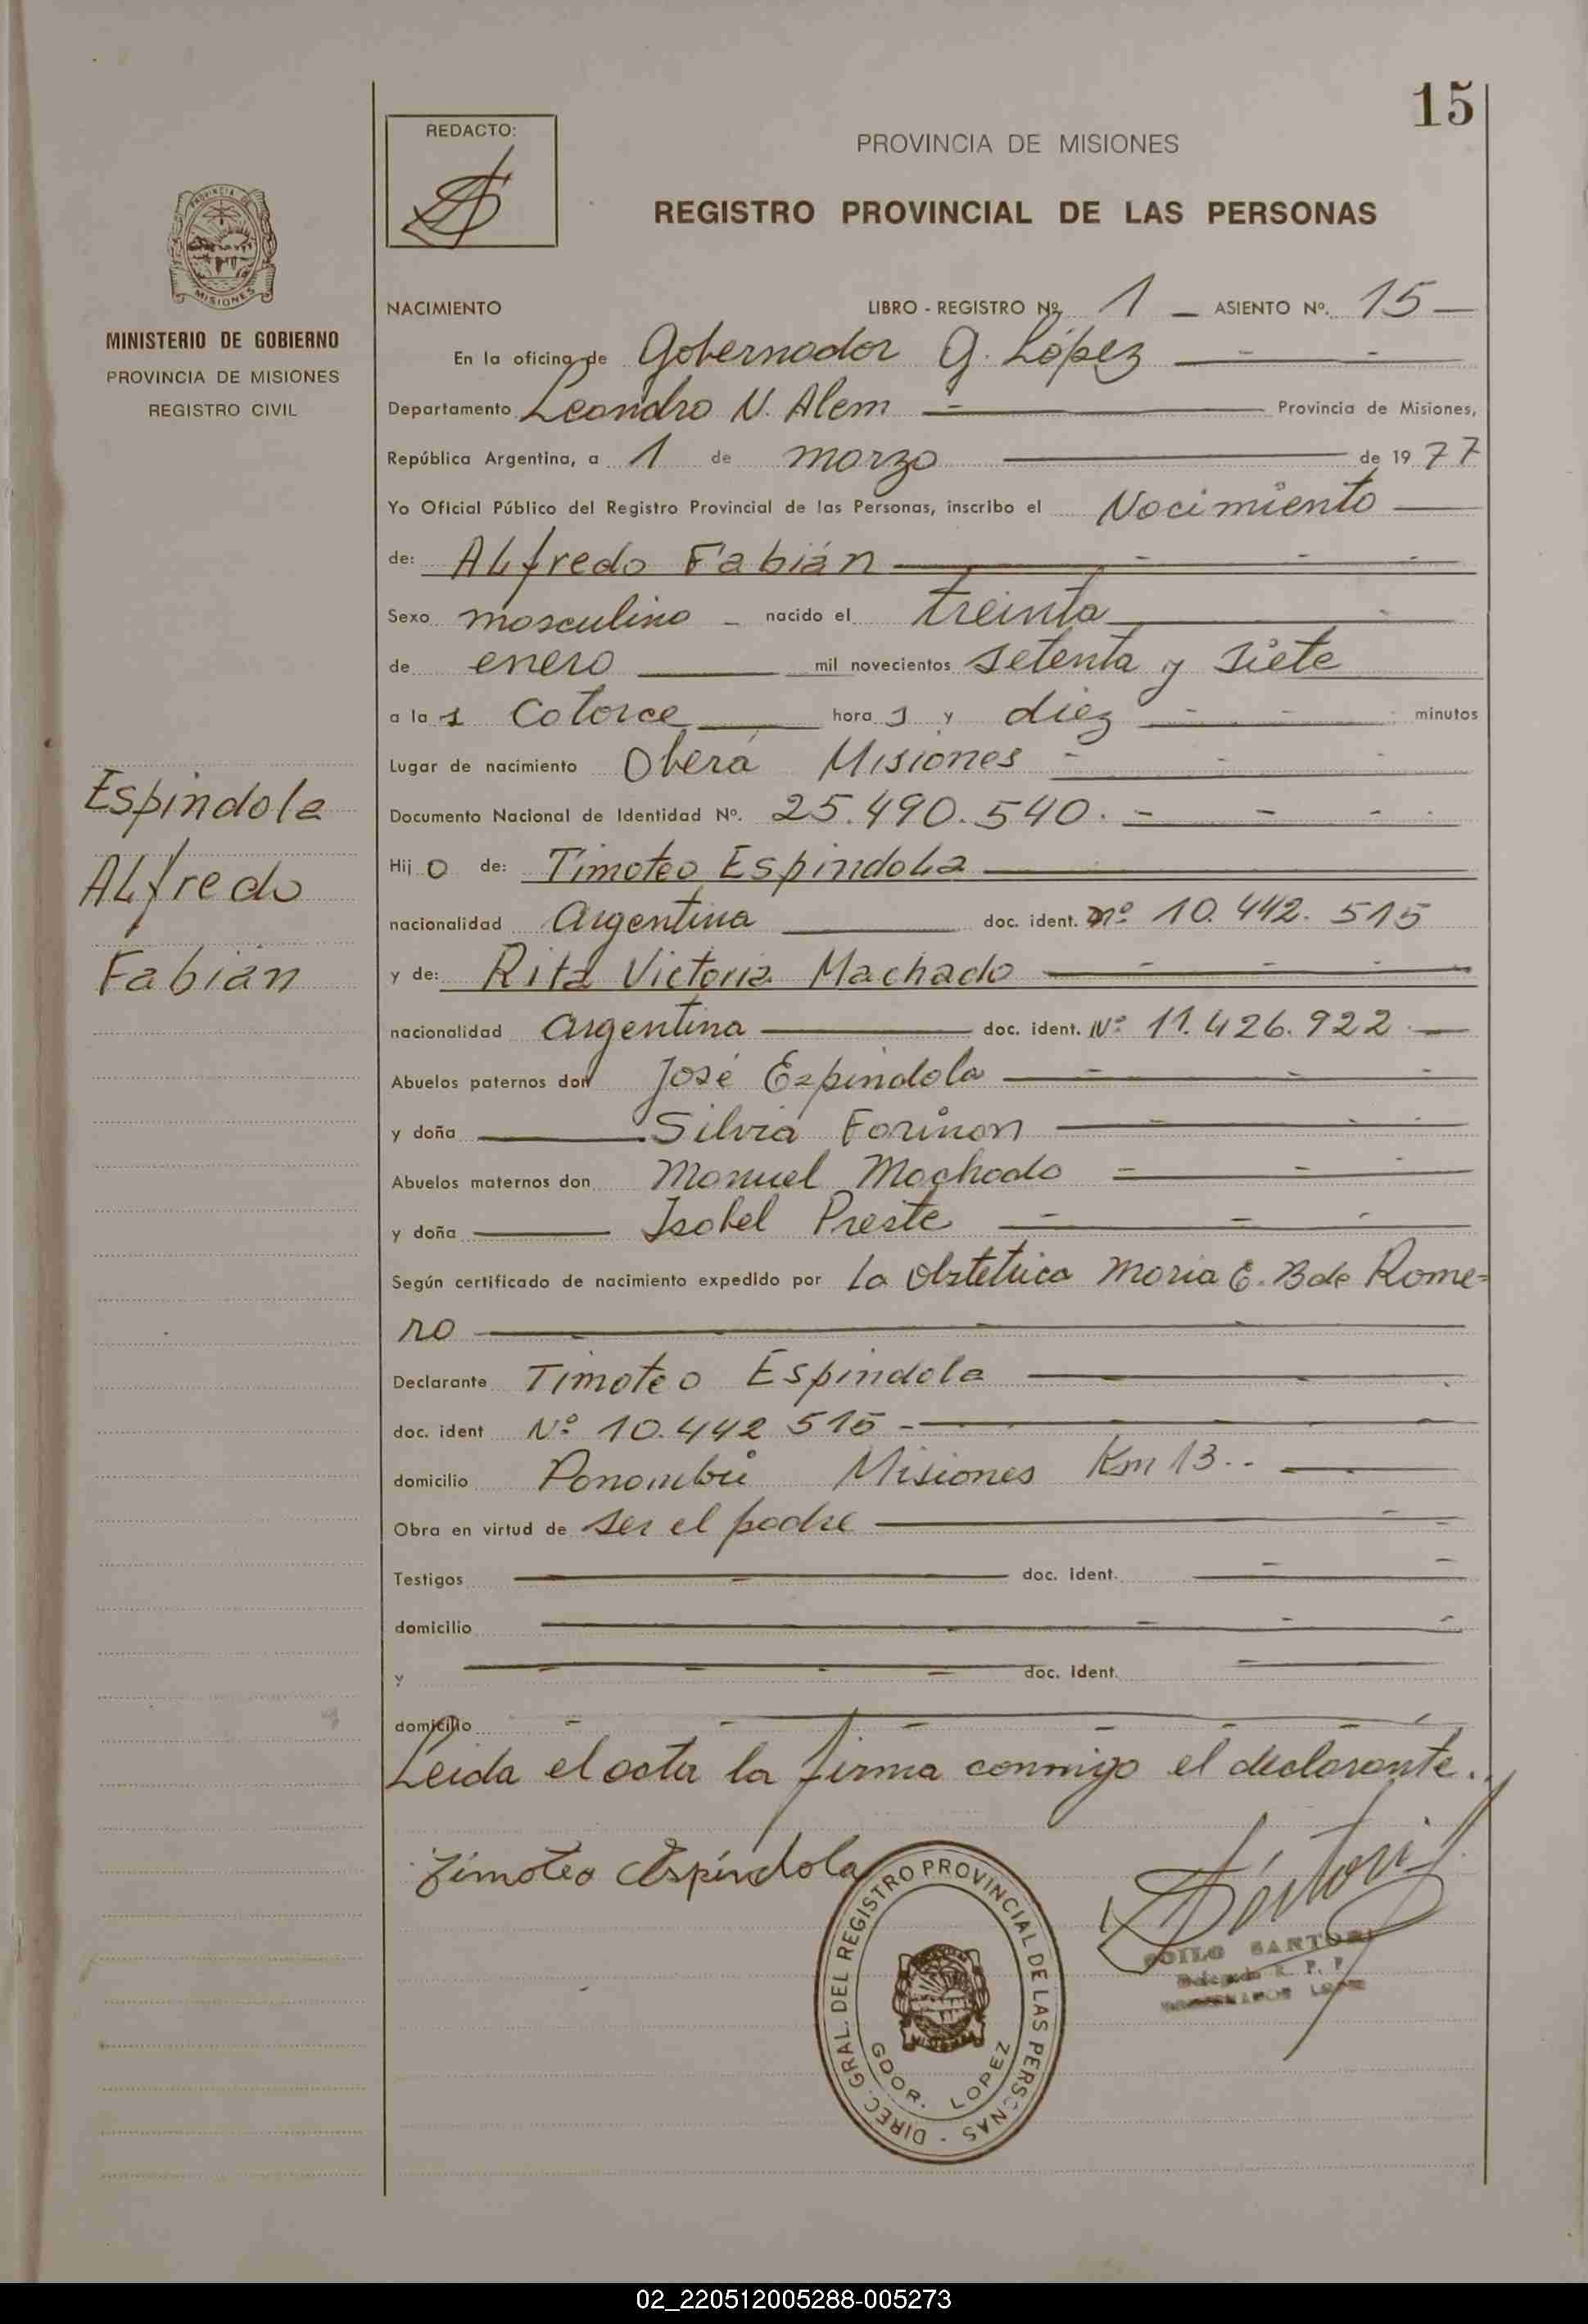 15
REDACTO:
PROVINCIA DE MISIONES
REGISTRO PROVINCIAL DE LAS PERSONAS
MISIONES
MINISTERIO DE GOBIERNO
PROVINCIA DE MISIONES
REGISTRO CIVIL
NACIMIENTO LIBRO - REGISTRO Nº 1 - ASIENTO Nº. 15
En la oficina de Gobernador G. López
Departamento Leandro N. Alem Provincia de Misiones,
República Argentina, a 1 de marzo de 1977
Yo Oficial Público del Registro Provincial de las Personas, inscribo el Nacimiento
de: ALfredo Fabián
Sexo masculino nacido el treinta
de enero mil novecientos setenta y siete
a las Catorce horas y diez minutos
Lugar de nacimiento Oberá Misiones
Documento Nacional de Identidad Nº. 25.490.540.
Espindola
Hijo de: Timoteo EspindoLa
ALfredo
nacionalidad Argentina doc. ident. nº 10.442.515
Fabián
y de: Rita Victoria Machado
nacionalidad Argentina doc. ident. Nº 11.426.922
Abuelos paternos don José Espindola
y doña Silvia Foriñon
Abuelos maternos don Manuel Machado
y doña Isabel Preste
Según certificado de nacimiento expedido por la Obstetrica Maria E. B de Rome=
ro
Declarante Timoteo Espindola
doc. ident Nº 10.442 515
domicilio Panambú Misiones Km 13..
Obra en virtud de ser el padre
Testigos doc. ident.
domicilio
y doc. ident.
domicilio
Leida el acta la firma conmigo el declarante.
Timoteo Espíndola
DIREC. GRAL. DEL REGISTRO PROVINCIAL DE LAS PERSONAS -
GDOR. LOPEZ
MISIONES
SANTORI
Delegado R. P. P.
02_220512005288-005273